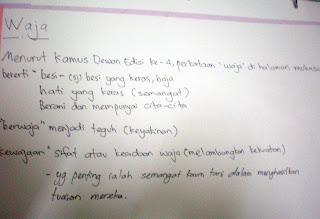 Waja
Menurut Kamus Dewan Edisi ke-4, perkataan 'waja' di halaman
bererti "besi-(sj) besi yang keras, baja
hati yang keras (semangat)
Berani dan mempunyai cita-cita
"berwaja" menjadi teguh (keyakinan)
kewajaan" sifat atau keadaan waja (melambangkan kekuatan)
- yg penting ialah semangat kaum tani dalam menghasilkan
tuaian mereka.